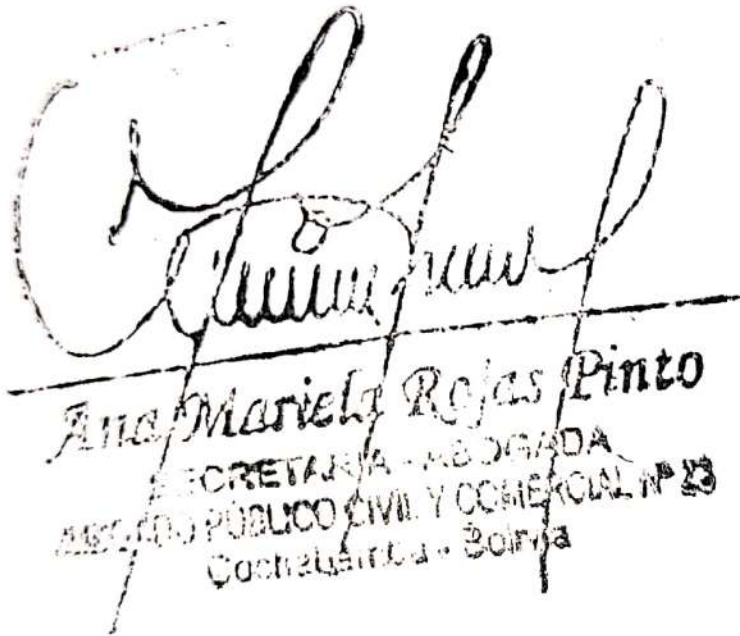 Ana Mariela Rojas Pinto
SECRETARIA - ABOGADA
JUZGADO PÚBLICO CIVIL Y COMERCIAL Nº 23
Cochabamba - Bolivia